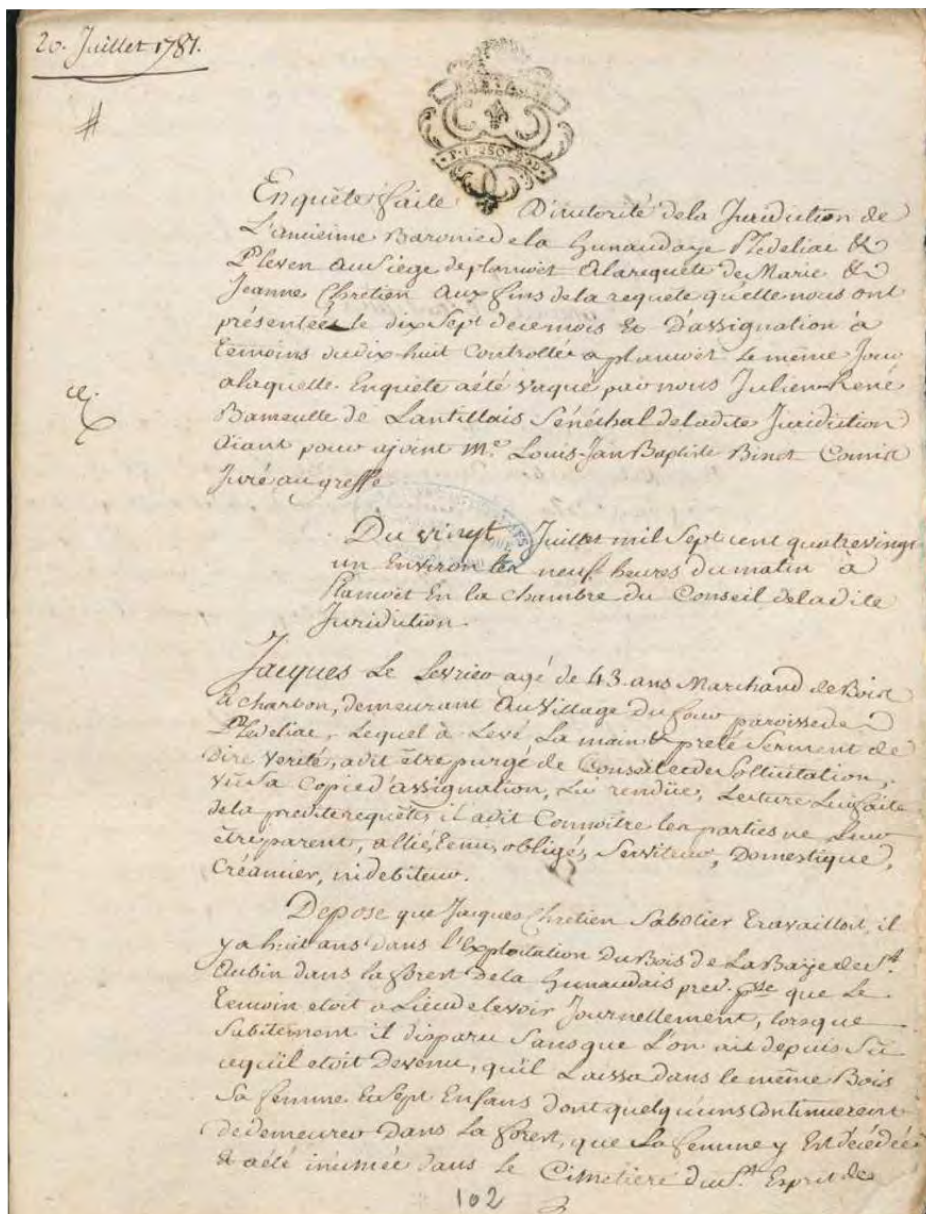 20. Juillet 1781.
#
Enquête faite D'autorité de la Juridiction de
L'ancienne Baronie de la hunaudaye Pledeliac &
Pleven au Siège de plancoët a la requête de Marie &
Jeanne Chrétien aux fins de la requete qu'elle nous ont
présentées le dix Sept de ce mois & D'assignation à
témoins du dix-huit Controllée a plancoët le même Jour
a laquelle Enquête a été vaqué par nous Julien-René
de Lantillais Sénéchal de la dite Juridiction
aiant pour ajoint Me. Louis-Jan Baptiste Binot Comis
Juré au greffe
Du vingt Juillet mil Sept cent quatrevingt
un Environ les neuf heures du matin à
Plancoët En la chambre du Conseil de la dite
Juridiction.
Jacques Le Levrier agé de 43 ans Marchand de Bois
à charbon, demeurant au Village du four paroisse de
Pledeliac, Lequel à Levé La main & preté Serment de
dire Verité, a dit être purgé de Conseil et de Sollicitation,
vû Sa Copie d'assignation, La rendüe, Lecture Lui faite
de la predite requête, il a dit Connoître les parties ne Leur
être parent, allié, tenu, obligé, Serviteur, Domestique,
Créancier, ni debiteur.
Depose que Jacques Chretien Sabotier travailloit, il
y a huit ans dans l'Exploitation Du Bois de La Baye de St.
Aubin dans la forest de la hunaudais pred. psse que Le
temoin etoit a Lieu de le voir Journellement, lorsque
Subitement il disparu Sans que L'on ait depuis Sû
ce qu'il etoit Devenu, qu'il Laissa dans le même Bois
Sa femme Et Sept Enfans dont quelqu'uns Continuerent
de demeurer Dans La forest, que La femme y Est décédée
& a été inumée dans le Cimetiere du St. Esprit des
102